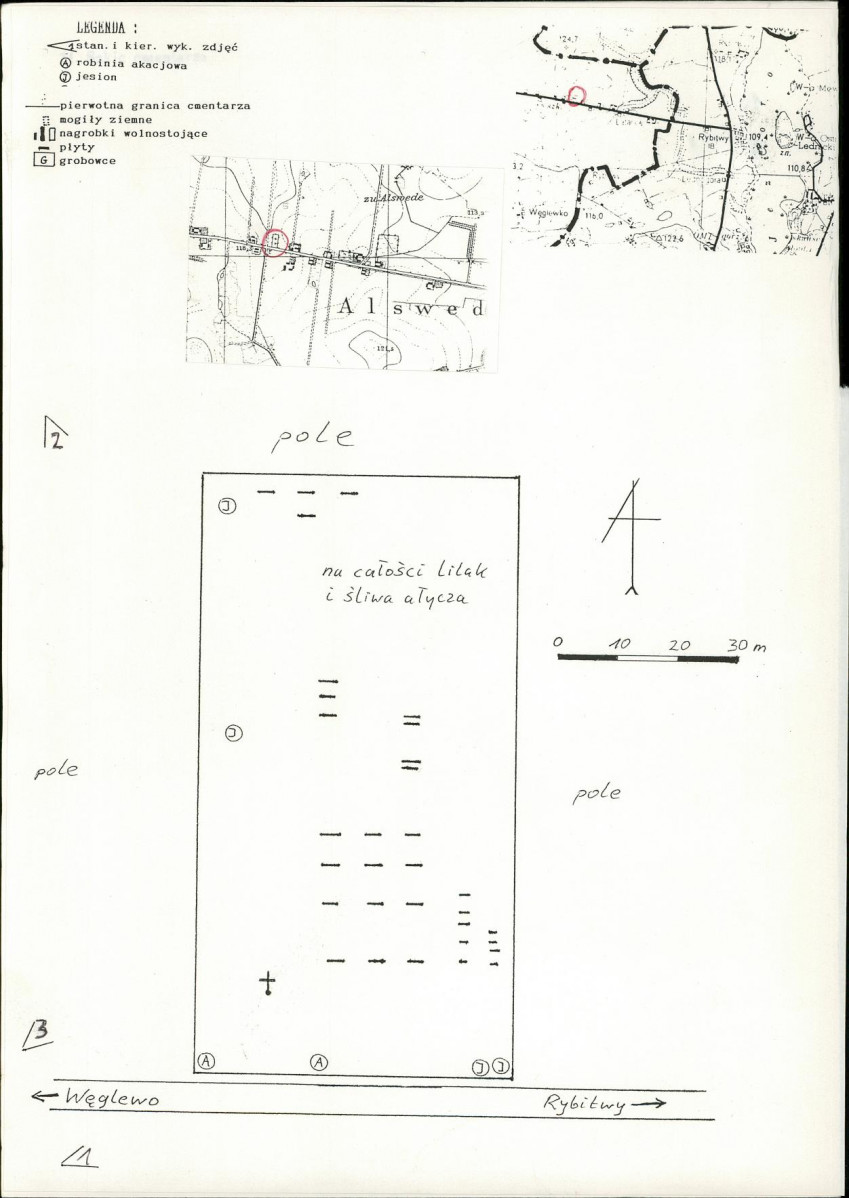 LEGENDA :
1 stan. i kier. wyk. zdjęć
A robinia akacjowa
J jesion
pierwotna granica cmentarza
mogiły ziemne
nagrobki wolnostojące
płyty
G grobowce
124,7
Rybitwy
109,4
110,8
3,2
Węglewko
116,0
122,6
zu Alswede
113,2
Alswed
121,2
2
pole
J
na całości lilak
i śliwa ałycza
0 10 20 30 m
J
pole
pole
3
A
A
J
J
Węglewo
Rybitwy
1